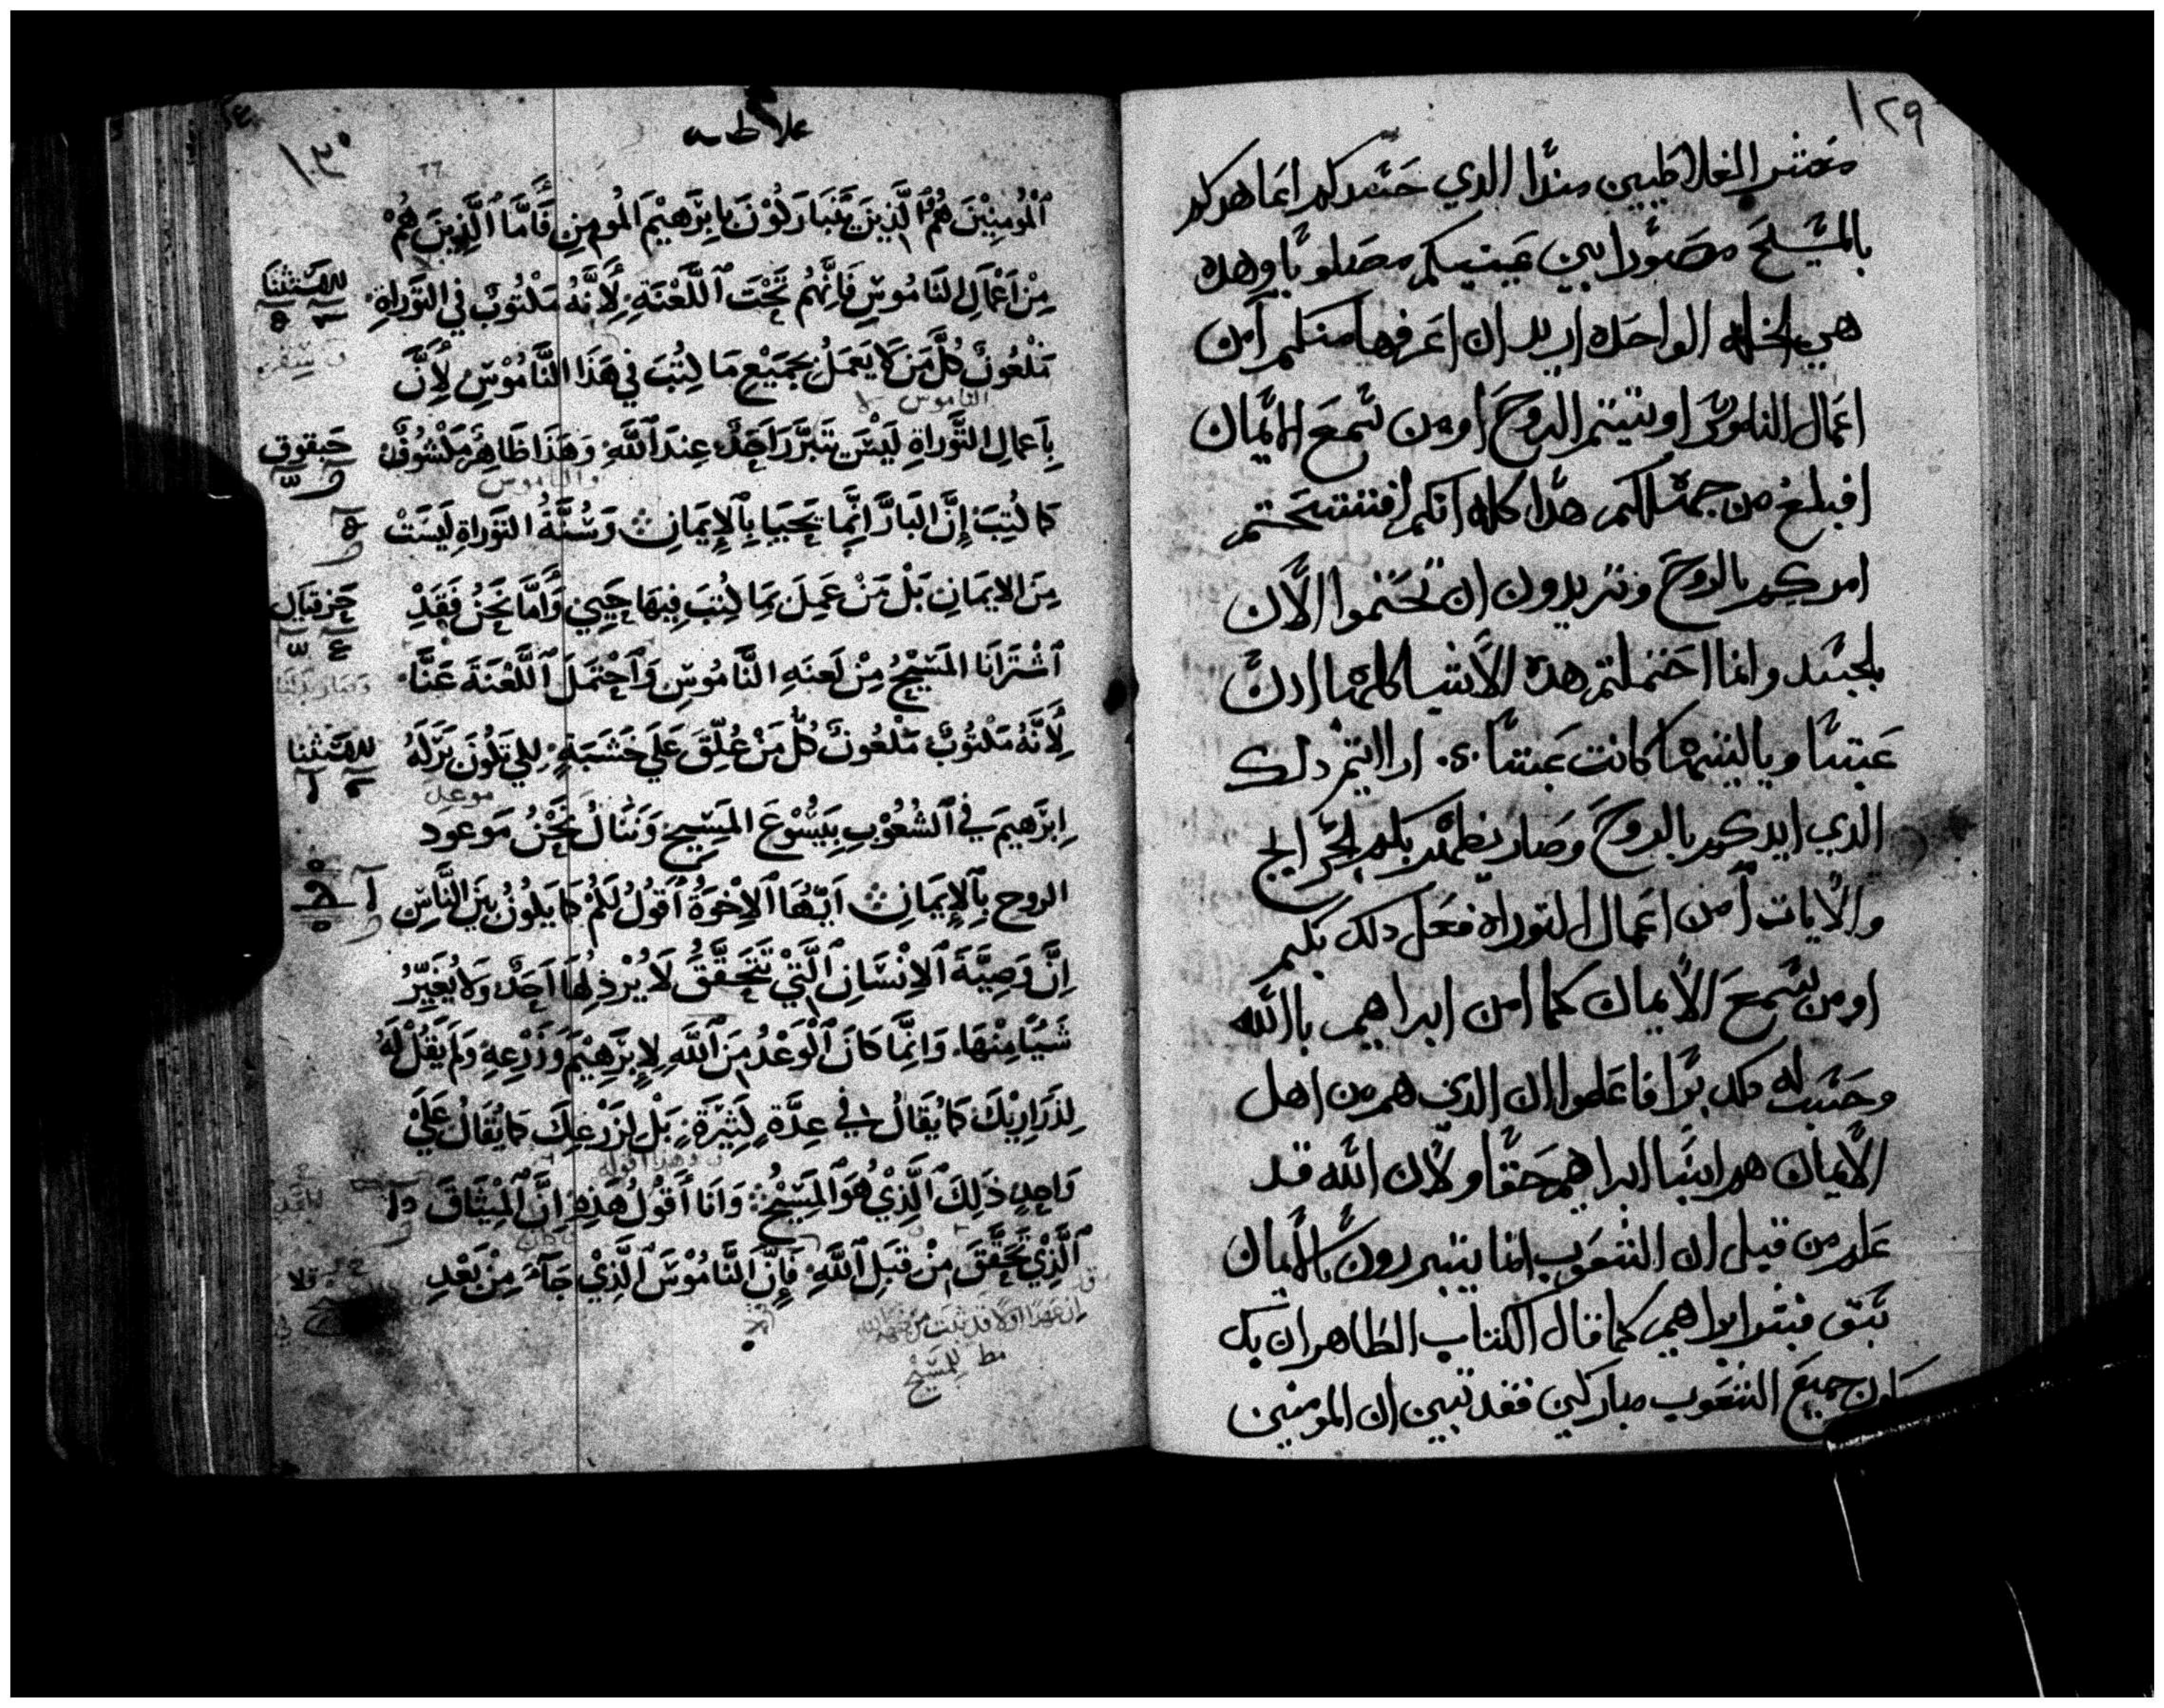 ١٢٩
معشر الغلاطيين مندا الدي حسدكم اما هوكد
بالمسيح مصورا بين عينيكم مصلوبا وهده
هي الخله الواحده اريد ان اعرفها منكم أمن
اعمال الناموس اوتيتم الروح او من سمع الايمان
افبلغ من جهلكم هدا كله انكم افتتحتم
امركم بالروح وتريدون ان تختموا الآن
بلجسد وانما احتملتم هده الاشيا كلها ادن
عبتا وياليتها كانت عبتا ارايتم دلك
الدي ايدكم بالروح وصار يظهر بكم الجرايح
والايات أمن اعمال التوراه فعل دلك بكم
او من سمع الايمان كما امن ابراهيم بالله
وحسب له دلك برا فاعلموا ان الدين هم من اهل
الايمان هم ابنا ابراهيم حقا ولان الله قد
علم من قبل ان الشعوب انما يتبررون بالايمان
سبق فبشر ابراهيم كما قال الكتاب الطاهر ان بك
يكون جميع الشعوب مباركين فقد تبين ان المومنين
غلاطيه
١٣٠
ٱلْمُومِنِيْنَ هُمُ ٱلَّذِينَ يَتَبَارَكُوْنَ بِابِرَٰهِيْمَ المُومِنِ فَأَمَّا ٱلَّذِينَ هُمْ
مِنْ اَعْمَالِ النَامُوسِ فَاِنَّهُم تَحْتَ ٱللَّعْنَةِ لِأَنَّهُ مَكْتُوبٌ فِي التَوْرَاةِ
للاستثنا
مَلْعُونٌ كُلُّ مَن لَا يَعمَلُ بِجَمِيْعِ مَا كُتِبَ فِي هَذَا النَّامُوْسِ لِأَنَّ
الناموس لا
بِاَعمالِ التَّوْرَاةِ لَيْسَ يَتَبَرَّرَ اَحَدٌ عِندَ ٱللَّهِ وَهَذَا ظَاهِرٌ مَكْشُوفٌ
حبقوق
والناموس
كَمَا كُتِبَ إِنَّ البَارَّ اِنَّمَا يَحيَيَا بِٱلاِيمَانِ وَسُنَّةُ التَوَراةِ لَيسَتْ
مِنَ الايمَانِ بَلْ مَنْ عَمِلَ بِمَا كُتِبَ فِيهَا حَيِيَ وَأَمَّا نَحنُ فَقَدْ
حزقيال
ٱشْتَرَانَا المَسِيْحُ مِنْ لَعنَةِ النَّامُوسِ وَٱحْتَمَلَ ٱللَّعْنَةَ عَنَّا
لِأَنَّهُ مَكْتُوبٌ مَلْعُونٌ كُلُّ مَنْ عُلِّقَ عَلَى خَشَبَةٍ لِكَي تَكُونَ بَرَكَةُ
للاستثنا
موعد
اِبرَٰهِيمَ فِي ٱلشُعُوْبِ بِيَسُوْعَ المَسِيحِ وَنَنَالُ نَحْنُ مَوعود
الروح بِٱلإِيمَانِ اَيّهَا ٱلاِخْوَةُ أَقُولُ لَكُمْ كَمَا يَكُونُ بَيْنَ النَّاسِ
اِنَّ وَصِيَّةَ ٱلاِنْسَانِ ٱلَّتِيْ تَتَحَقَّقُ لَا يُرْذِلُهَا اَحَدٌ وَلَا يُغَيِّرُ
شَيْيًا مِنْهَا وَاِنَّمَا كَانَ ٱلْوَعْدُ مِنَ ٱللَّهِ لِإِبرَٰهِيْمَ وَزَرْعِهِ وَلَم يَقُلْ لَهُ
لِذَرَارِيْكَ كَمَا يُقَالُ فِي عِدَّةٍ كَثِيْرَةٍ بَلْ لِزَرْعِكَ كَمَا يُقَالُ عَلَي
وهذا اقوله
وَاحِدٍ ذَلِكَ ٱلَّذِيْ هُوَ ٱلمَسِيْحُ وَاَنَا اَقُولُ هَذِهِ اِنَّ ٱلْمِيْثَاقَ
كان
ٱلَّذِيْ تَحَقَّقَ مِنْ قِبَلِ ٱللَّهِ فَإِنَّ ٱلنَّامُوْسَ ٱلَّذِيْ جَآءَ مِنْ بَعْدِ
ان عهدا اولا قد ثبت من جهة الله
للمسيح